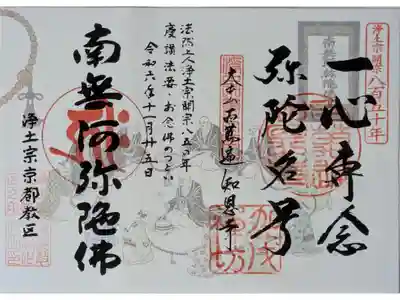 浄土宗開宗八百五十年
一心専念
弥陀名号
大本山百萬遍知恩寺
法然上人浄土宗開宗八五〇年
慶讃法要 お念佛のつどい
令和六年十一月廿五日
南無阿弥陀佛
浄土宗京都教区